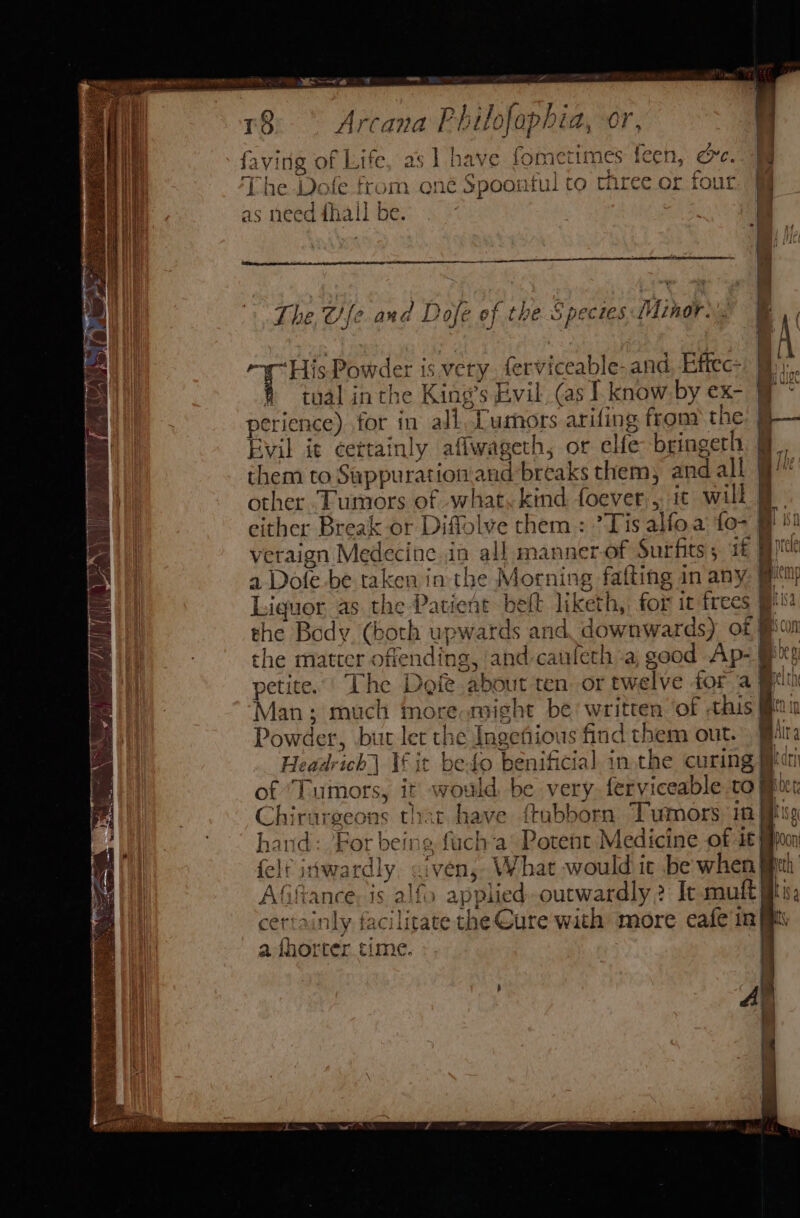 18 Arcana Philoſophia, or,
ſaving of Life, as I have ſometimes ſeen, &c.
The Doſe from one Spoonful to three or four
as need ſhall be.
The Uſe and Doſe of the Species Minor.
THis Powder is very ſerviceable and Effec-
tual in the King's Evil (as I know by ex-
perience) for in all Tumors ariſing from the
Evil it certainly aſſwageth, or elſe bringeth
them to Suppuration and breaks them, and all
other Tumors of what kind ſoever, it will
either Break or Diſſolve them: 'Tis alſo a ſo-
veraign Medecine in all manner of Surfits; if
a Doſe be taken in the Morning faſting in any
Liquor as the Patient beſt liketh, for it frees
the Body (both upwards and downwards) of
the matter offending, and cauſeth a good Ap-
petite. The Doſe about ten or twelve for a
Man; much more might be written of this
Powder, but let the Ingenious find them out.
Headrich] If it be ſo benificial in the curing
of Tumors, it would be very ſerviceable to
Chirurgeons that have ſtubborn Tumors in
hand: For being ſuch a Potent Medicine of it
ſelf inwardly given, What would it be when
Aſſiſtance is alſo applied outwardly? It muſt
certainly facilitate the Cure with more eaſe in
a ſhorter time.
A